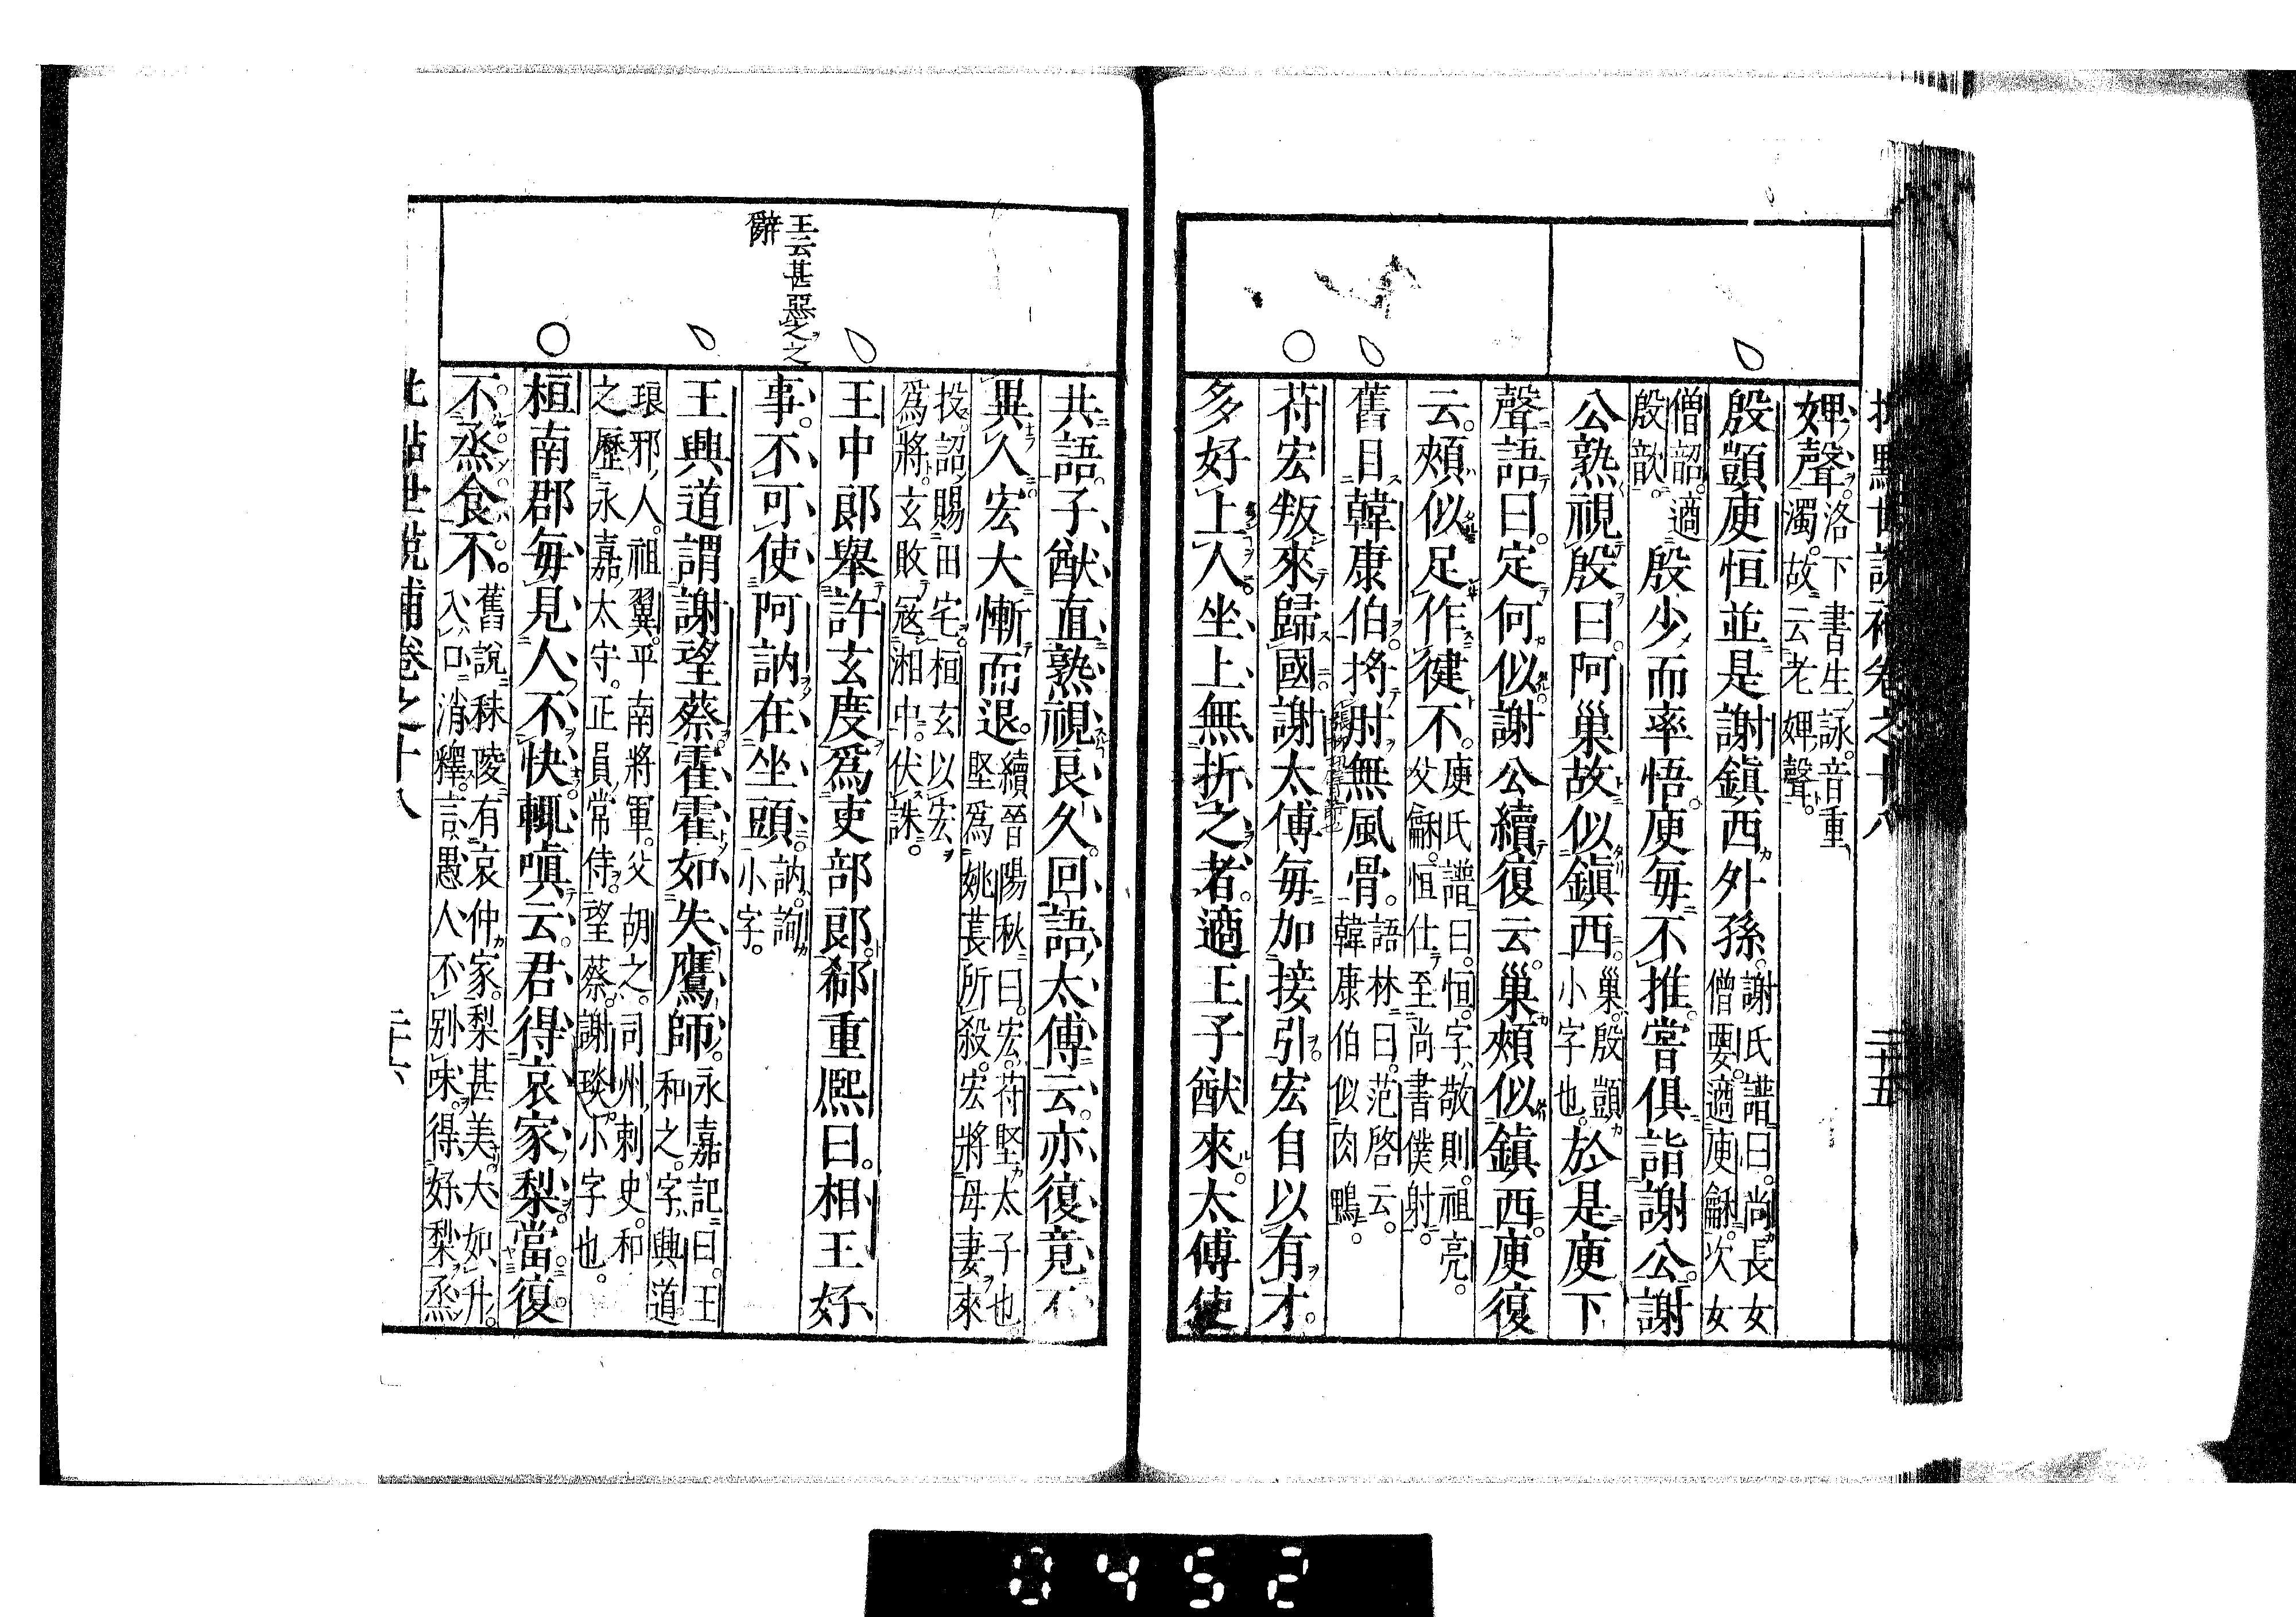 婢聲。洛下書生詠。音重濁。故云老婢聲。
殷顗庾恒並是謝鎮西外孫。謝氏譜曰。尚長女僧要。適庾龢。次女
僧韶。適殷歆。殷少而率悟。庾每不推。嘗俱詣謝公。謝
公熟視殷曰。阿巢故似鎮西。巢。殷顗小字也。於是庾下
聲語曰。定何似。謝公續復云。巢頰似鎮西。庾復
云。頰似足作健不。庾氏譜曰。恒。字敬則。祖亮。父龢。恒仕至尚書僕射。
舊目韓康伯。捋肘無風骨。語林曰。范啓云。韓康伯似肉鴨。
苻宏叛來歸國。謝太傅每加接引。宏自以有才。
多好上人。坐上無折之者。適王子猷來。太傅使
共語。子猷直熟視良久。回語太傅云。亦復竟不
異人。宏大慚而退。續晉陽秋曰。宏。苻堅太子也。堅爲姚萇所殺。宏將母妻來
投。詔賜田宅。桓玄以宏爲將。玄敗。寇湘中。伏誅。
王中郎舉許玄度爲吏部郎。郗重熙曰。相王好
事。不可使阿訥在坐頭。訥。詢小字。
王興道謂謝望蔡霍霍如失鷹師。永嘉記曰。王和之。字興道。
琅邪人。祖翼。平南將軍。父胡之。司州刺史。和之歷永嘉太守。正員常侍。望蔡。謝琰小字也。
桓南郡每見人不快。輒嗔云。君得哀家梨。當復
不蒸食不。舊說秣陵有哀仲家。梨甚美。大如升。入口消釋。言愚人不別味。得好梨蒸
二十五
王云甚惡之之
辭
0452